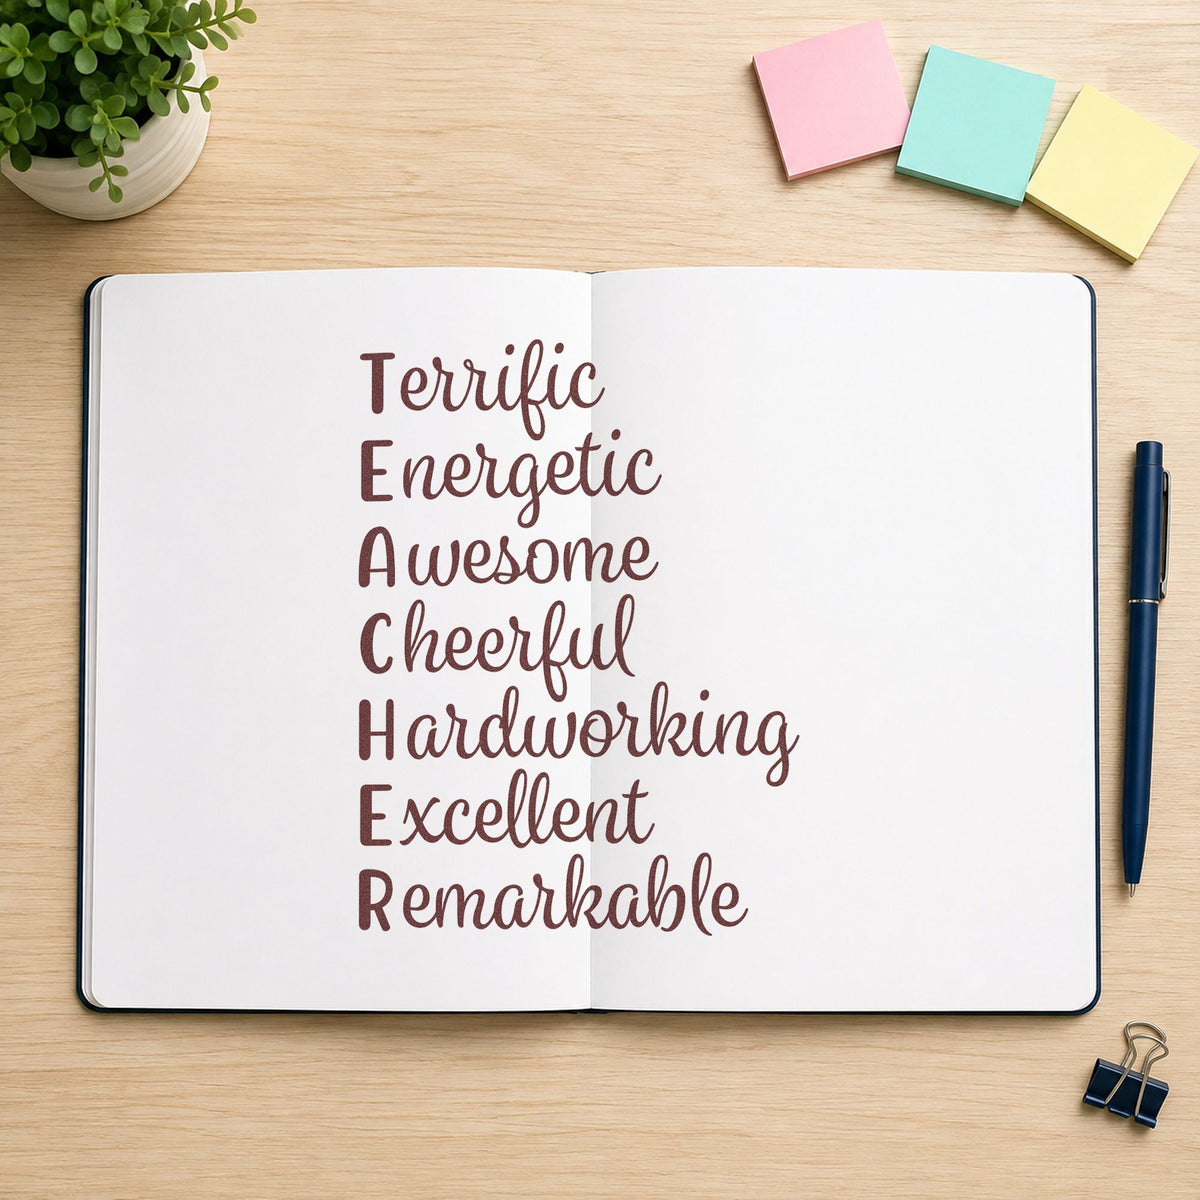 Terrific
Energetic
Awesome
Cheerful
Hardworking
Excellent
Remarkable